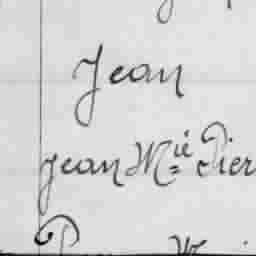 Jean
Jean Mie Pier